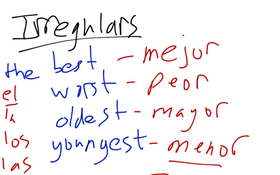 Irregulars
the best - mejor
el worst - peor
la oldest - mayor
los youngest - menor
las